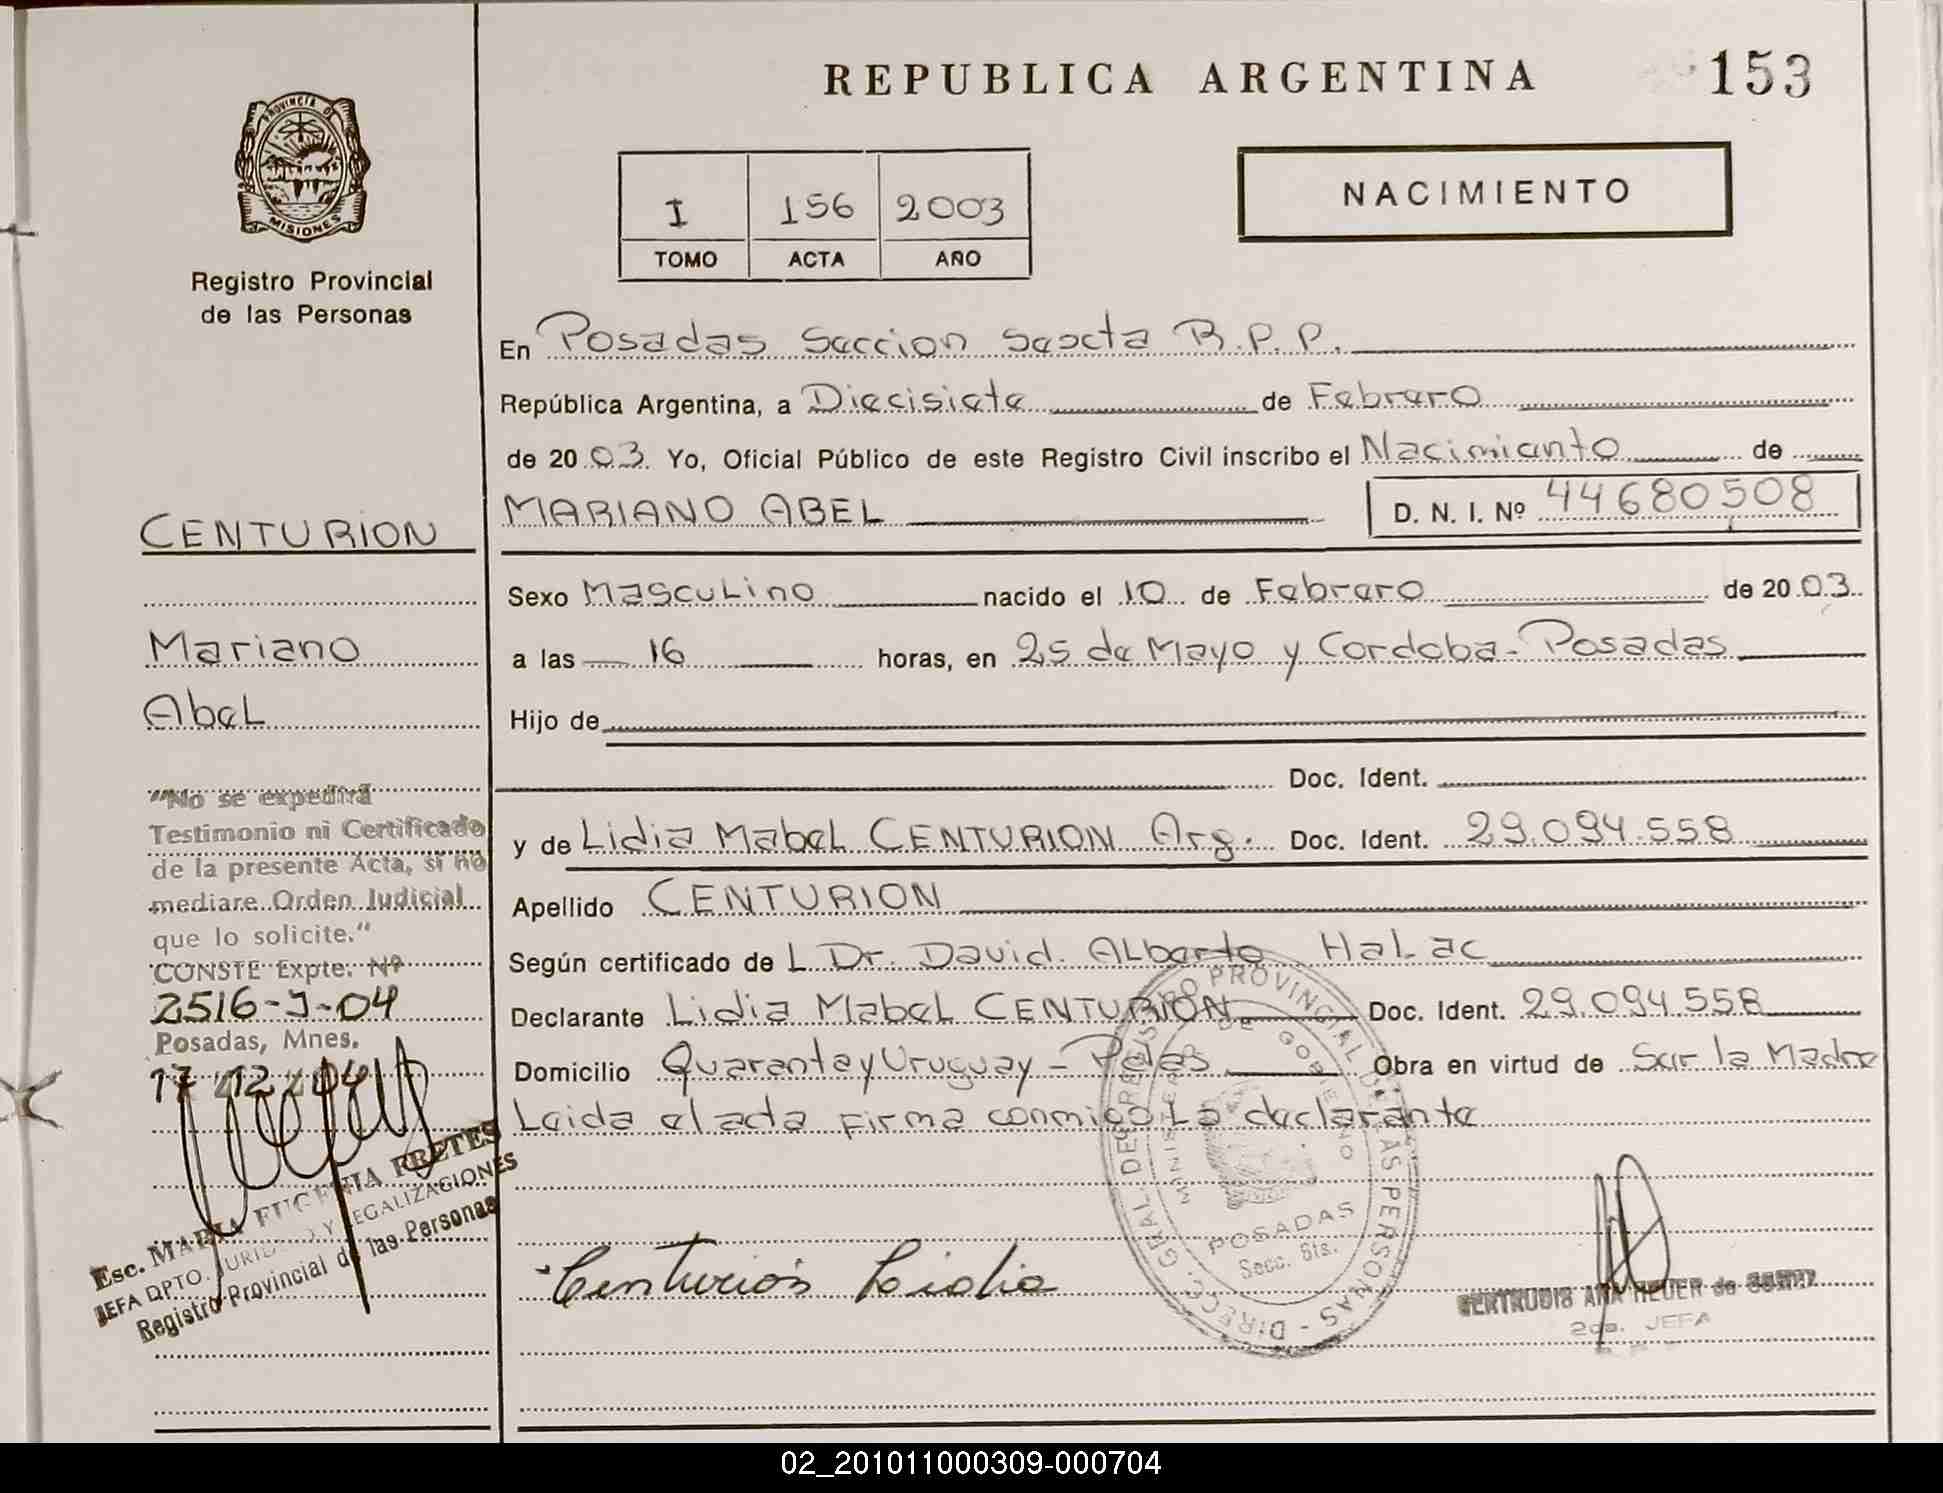 REPUBLICA ARGENTINA
153
PROVINCIA DE
MISIONES
Registro Provincial
de las Personas
I 156 2003
TOMO ACTA AÑO
NACIMIENTO
En Posadas Seccion Sexcta R.P.P.
República Argentina, a Diecisiete de Febrero
de 2003. Yo, Oficial Público de este Registro Civil inscribo el Nacimiento de
MARIANO ABEL D. N. I. Nº 44680508
Sexo Masculino nacido el 10 de Febrero de 2003.
a las 16 horas, en 25 de Mayo y Cordoba - Posadas
Hijo de
Doc. Ident.
y de Lidia Mabel CENTURION Arg. Doc. Ident. 29.094.558
Apellido CENTURION
Según certificado de L Dr. David Alberto Halac
Declarante Lidia Mabel CENTURION Doc. Ident. 29.094.558
Domicilio Quarenta y Uruguay - Pdas Obra en virtud de Ser la Madre
Leida el acta firma conmigo La declarante
Centurión Lidia
CENTURION
Mariano
Abel
"No se expedirá
Testimonio ni Certificado
de la presente Acta, si no
mediare Orden Judicial
que lo solicite."
CONSTE Expte. Nº
2516-J-04
Posadas, Mnes.
17 12 04
Esc. MARIA EUGENIA FRETES
JEFA DPTO. JURIDICO Y LEGALIZACIONES
Registro Provincial de las Personas
DIRECC. GRAL. DE REGISTRO PROVINCIAL DE LAS PERSONAS -
MINISTERIO DE GOBIERNO
POSADAS
Secc. 6ta.
GERTRUDIS ANA HEUER de
2da. JEFA
02_201011000309-000704